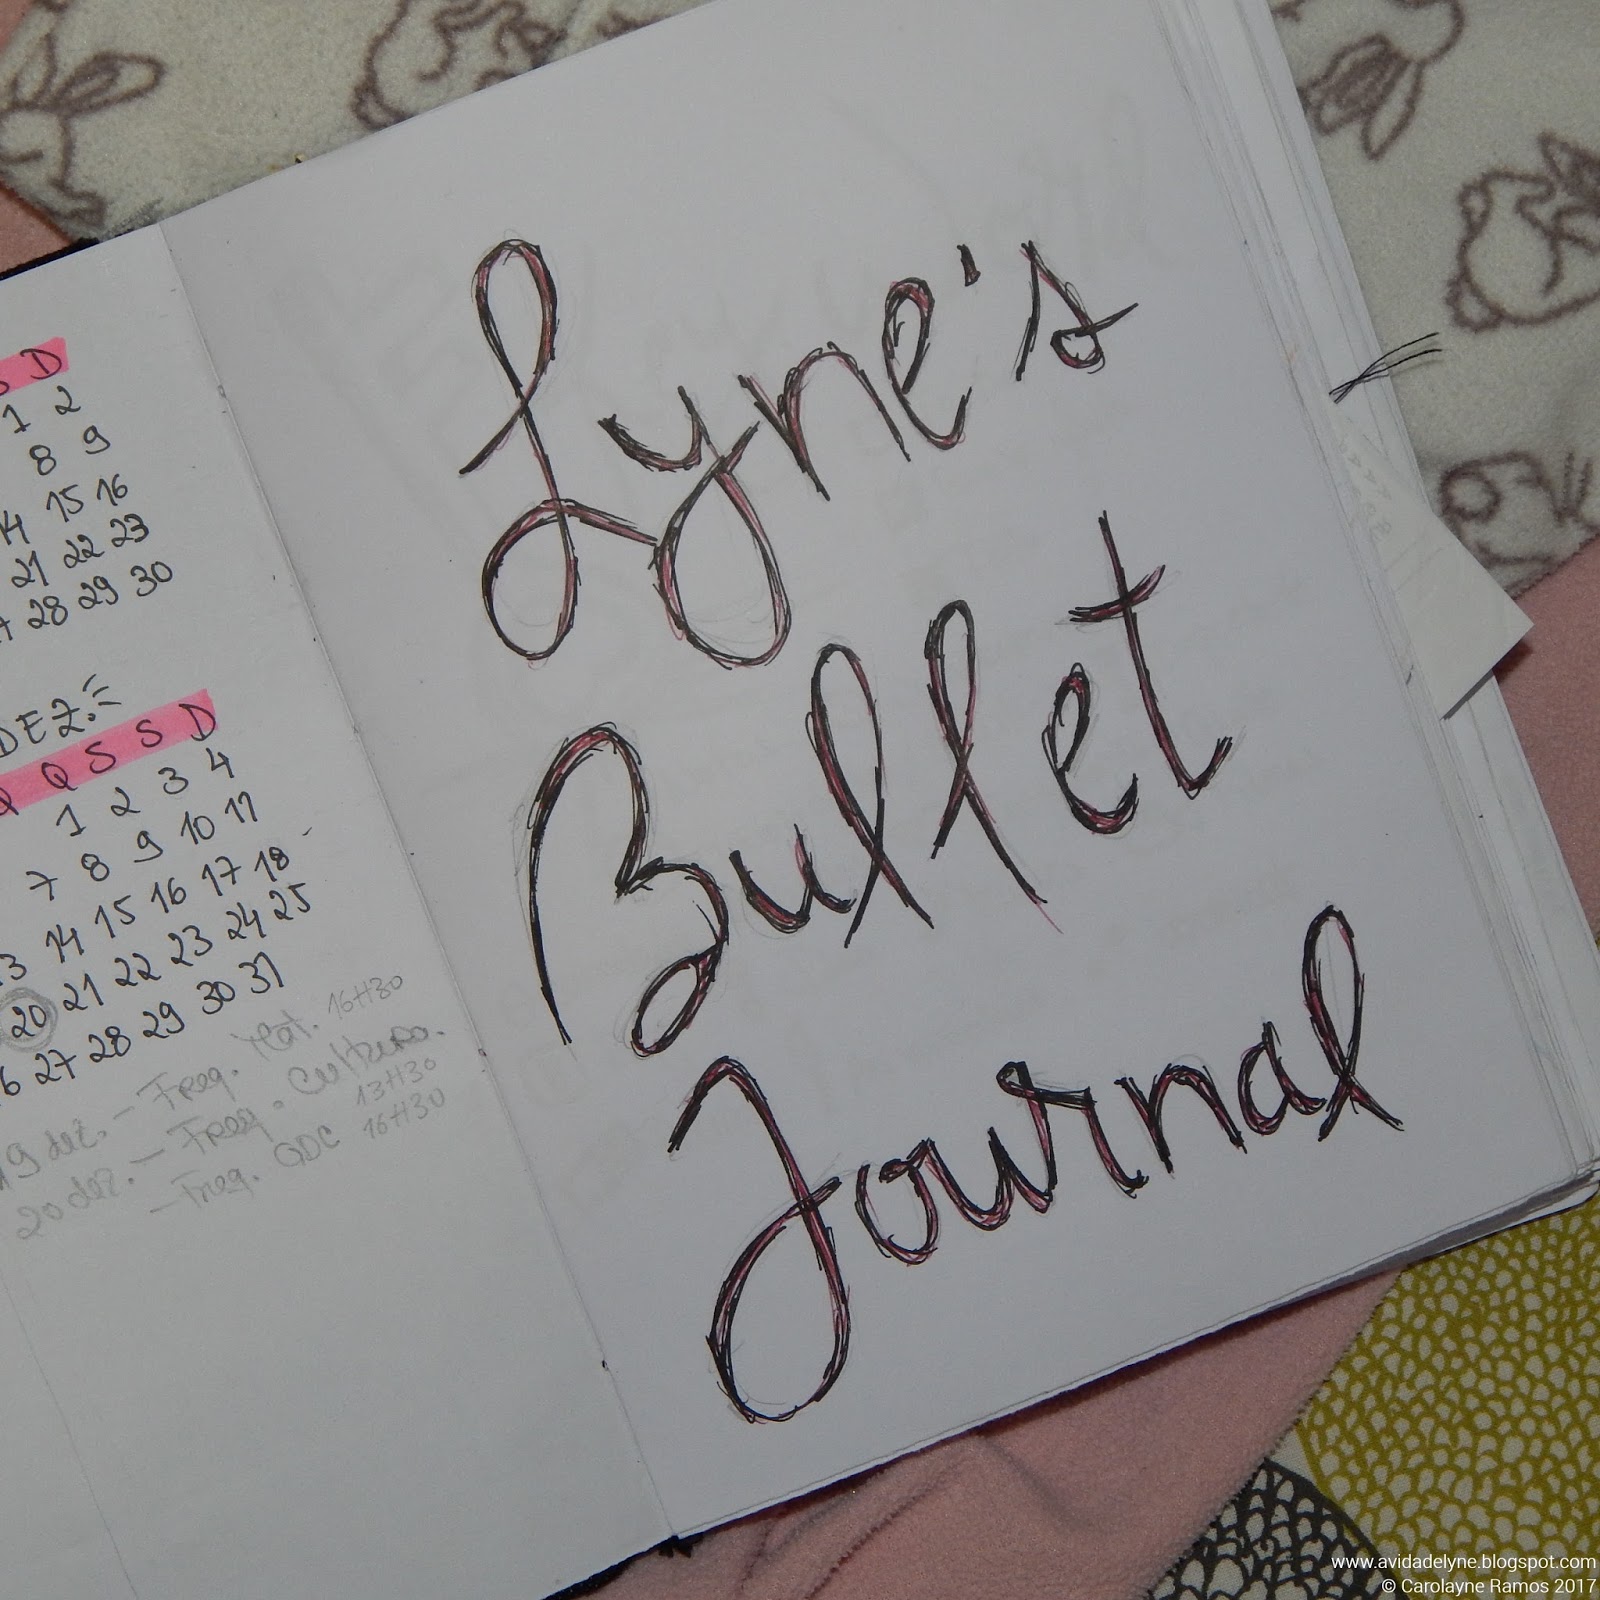 S D
1 2
8 9
14 15 16
21 22 23
28 29 30
DEZ.
Q Q S S D
1 2 3 4
7 8 9 10 11
13 14 15 16 17 18
20 21 22 23 24 25
27 28 29 30 31
19 dez. - Freq. Mat. 16H30
20 dez. - Freq. Cultura. 13H30
- Freq. GDC 16H30
Lyne's
Bullet
Journal
www.avidadelyne.blogspot.com
© Carolayne Ramos 2017